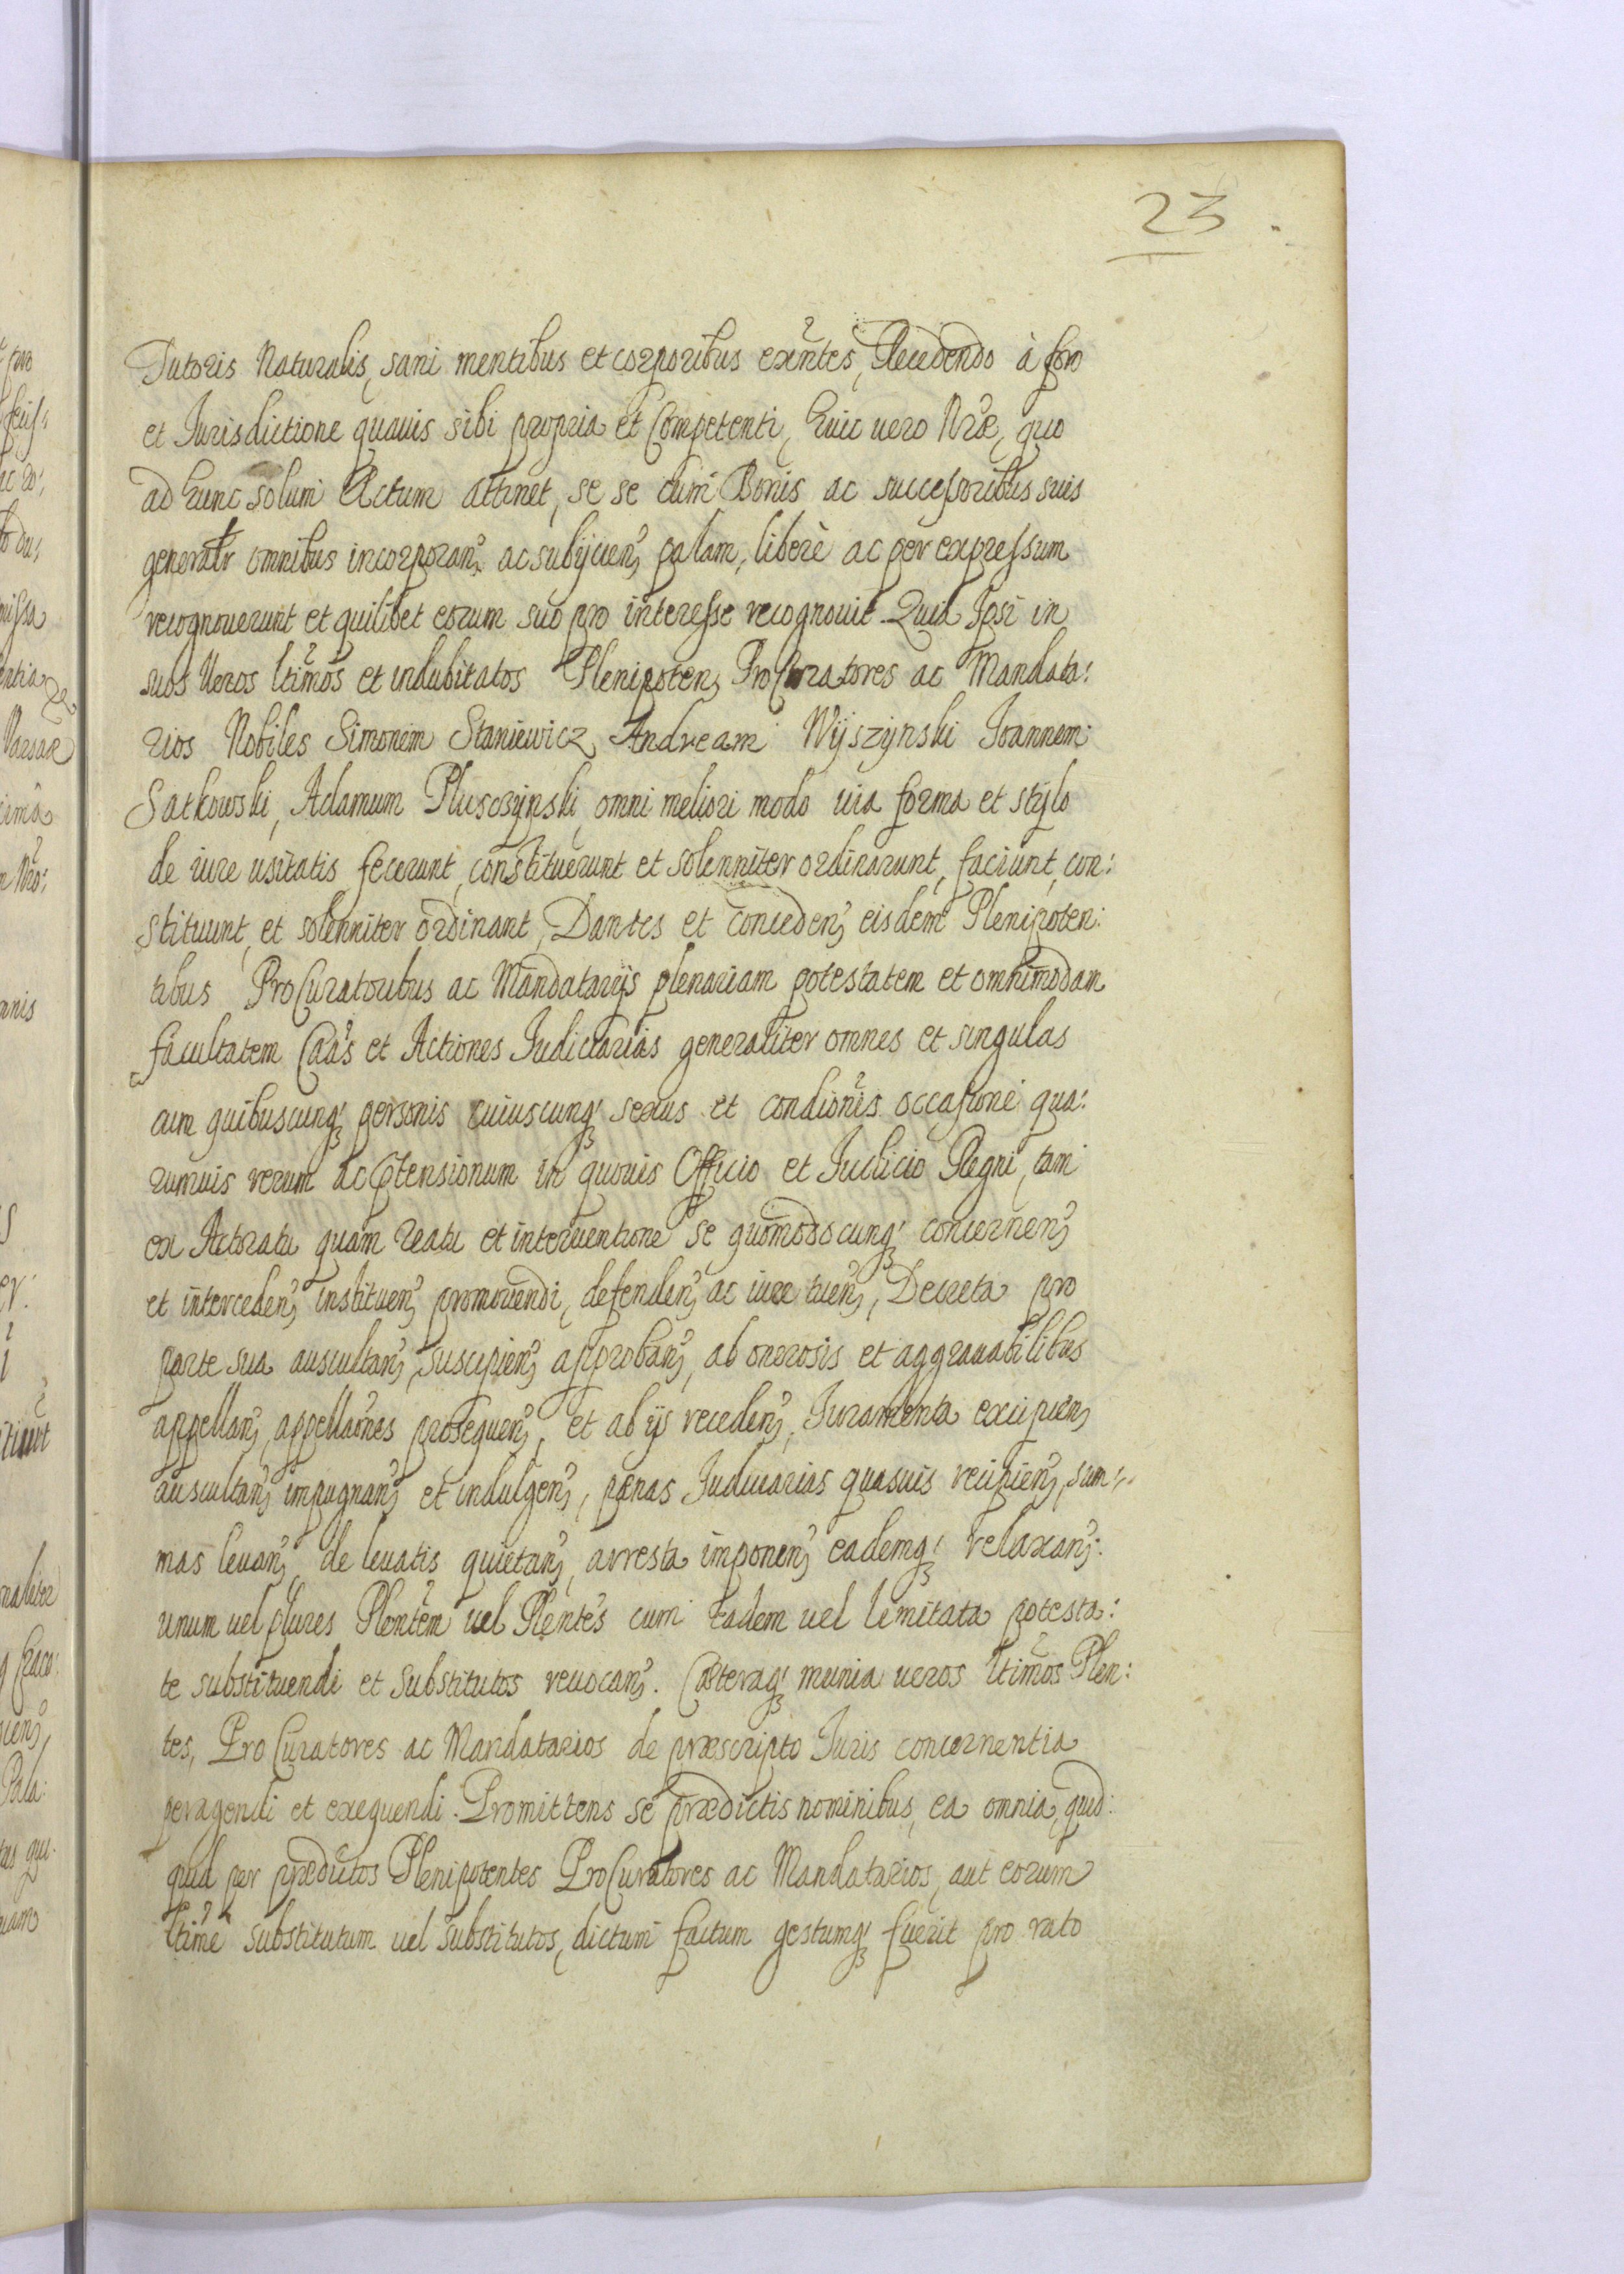 23
Tutoris Naturalis, sani mentibus et corporibus exntes, Recedendo à foro
et Jurisdictione quauis sibi propria et Competenti, huic uero Nræ, quo
ad hunc solum Actum attinet, se se cum Bonis ac successoribus suis
generalr omnibus incorporan, ac subijcien, palam, liberè ac per expressum
recognouerunt et quilibet eorum suo pro interesse recognouit. Quia Ipsi in
suos Ueros ltimos et indubitatos Plenipoten, ProCuratores ac Mandata:
rios Nobiles Simonem Staniewicz, Andream Wÿszÿnski Joannem
Satkowski, Adamum Plusczÿnski, omni meliori modo uia forma et stÿlo
de iure usitatis fecerunt, constituerunt et solenniter ordinarunt, faciunt, con:
stituunt, et solenniter ordinant, Dantes et Conceden, eisdem Plenipoten:
tibus ProCuratoribus ac Mandatarijs plenariam potestatem et omnimodam
facultatem Caas et Actiones Judiciarias generaliter omnes et singulas
cum quibuscunq, personis cuiuscunq, sexus et condionis occasione qua:
rumuis rerum ac ptensionum in quouis Officio et Judicio Regni, tam
ex Actoratu quam Reatu et interuentione se quomodocunq, concernen,
et interceden, instituen, promouendi, defenden, ac iure tuen, Decreta pro
parte sua auscultan, suscipien, approban, ab onerosis et aggrauabilibus
appellan, appellaones prosequen, et ab ijs receden, Juramenta excipien,
auscultan, impugnan, et indulgen, pænas Judiciarias quasuis recipien, sum:
mas leuan, de leuatis quietan, arresta imponen, eademq, relaxan,
unum uel plures Plentem uel Plentes cum eadem uel limitata potesta:
te substituendi et Substitutos reuocan. Cæteraq, munia ueros ltimos Plen:
tes, ProCuratores ac Mandatarios de præscripto Juris concernentia
peragendi et exequendi. Promittens se prædictis nominibus, ea omnia, quid:
quid per prædictos Plenipotentes ProCuratores ac Mandatarios, aut eorum
ltime substitutum uel substitutos, dictum factum gestumq, fuerit pro rato